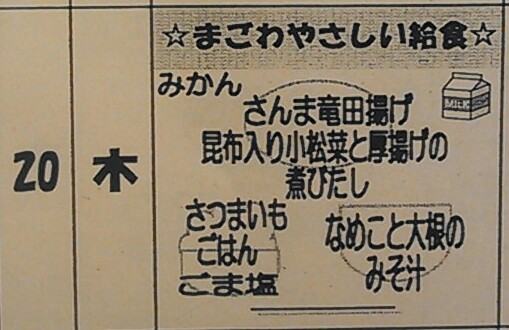 20
木
☆まごわやさしい給食☆
みかん
MILK
さんま竜田揚げ
昆布入り小松菜と厚揚げの
煮びたし
さつまいも
ごはん
ごま塩
なめこと大根の
みそ汁